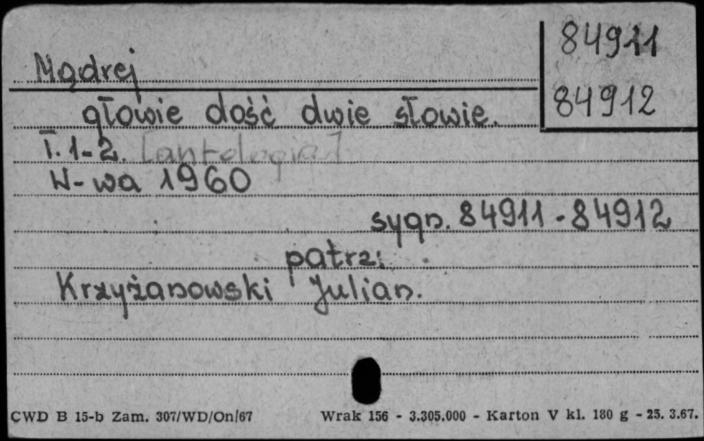 84911
84912
Mądrej
głowie dość dwie słowie.
T. 1-2. [antologia]
W-wa 1960
sygn. 84911 - 84912
patrz:
Krzyżanowski Julian.
CWD B 15-b Zam. 307/WD/On/67 Wrak 156 - 3.305.000 - Karton V kl. 180 g - 25. 3.67.